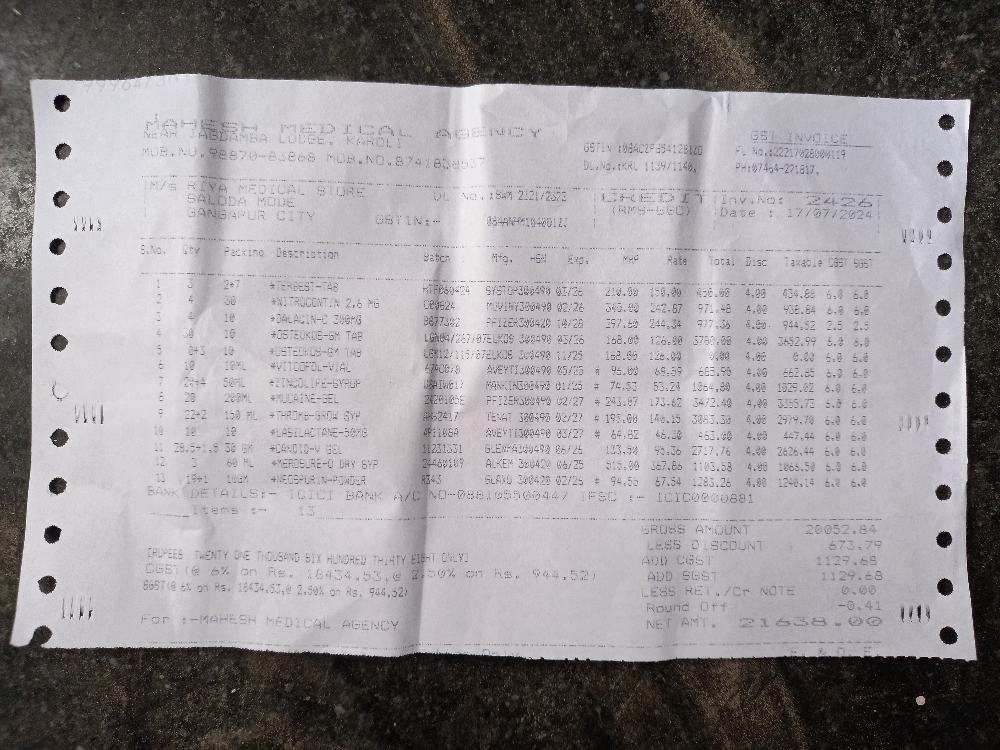 MAHESH MEDICAL AGENCY
NEAR JAGDAMBA LODGE, KAROLI
MOB.NO.98870-83868 MOB.NO.8741838537
GST INVOICE
GSTIN
FL No.:22217028000119
DL.No.:KRL 1139/1140,
PH:07464-221817,
M/s RIYA MEDICAL STORE
SALODA MODE
GANGAPUR CITY
DL No.
GSTIN:-
CREDIT
(RMS-GGC)
Inv.No: 2426
Date : 17/07/2024
S.No. Qty Packing Description Batch Mfg. HSN Exp. MRP Rate Total Disc Taxable CGST SGST
1 3 2*7 *TERBEST-TAB 300490 03/26 210.00 150.00 450.00 4.00 434.88 6.0 6.0
2 4 30 *NITROCONTIN 2.6 MG 300490 02/26 340.00 242.87 971.48 4.00 938.84 6.0 6.0
3 4 10 *DALACIN-C 300MG PFIZER 300420 10/28 397.60 244.34 977.36 4.00 944.52 2.5 2.5
4 30 10 *OSTEOKOS-GM TAB 300490 03/26 168.00 126.00 3780.00 4.00 3652.99 6.0 6.0
5 0+3 10 *OSTEOKOS-GM TAB 300490 11/25 168.00 126.00 0.00 4.00 0.00 6.0 6.0
6 10 10ML *VITCOFOL-VIAL 300490 05/25 # 96.00 68.59 685.90 4.00 662.85 6.0 6.0
7 20+4 50ML *ZINCOLIFE-SYRUP 300490 01/25 # 74.53 53.24 1064.80 4.00 1029.02 6.0 6.0
8 20 200ML *MUCAINE-GEL PFIZER 300490 02/27 # 243.07 173.62 3472.40 4.00 3355.73 6.0 6.0
9 22+2 150 ML *THROMB-GROW SYP 300490 02/27 # 195.00 140.15 3083.30 4.00 2979.70 6.0 6.0
10 10 10 *LASILACTANE-50MG 300490 03/27 # 64.82 46.30 463.00 4.00 447.44 6.0 6.0
11 28.5+1.5 30 GM *CANDID-V GEL 11231331 300490 06/26 133.50 95.36 2717.76 4.00 2626.44 6.0 6.0
12 3 60 ML DRY SYP 24460109 ALKEM 300420 06/25 515.00 367.86 1103.58 4.00 1066.50 6.0 6.0
13 19+1 10GM *NEOSPORIN-POWDER GLAXO 300420 02/26 # 94.55 67.54 1283.26 4.00 1240.14 6.0 6.0
BANK DETAILS:- ICICI BANK A/C NO-088105500447 IFSC :- ICIC0000881
Items :- 13
GROSS AMOUNT 20052.84
LESS DISCOUNT 673.79
[RUPEES TWENTY ONE THOUSAND SIX HUNDRED THIRTY EIGHT ONLY]
ADD CGST 1129.68
CGST(@ 6% on Rs. 18434.53,@ 2.50% on Rs. 944.52)
ADD SGST 1129.68
SGST(@ 6% on Rs. 18434.53,@ 2.50% on Rs. 944.52)
LESS RET./Cr NOTE 0.00
Round Off -0.41
For :-MAHESH MEDICAL AGENCY
NET AMT. 21638.00
E. & O.E.